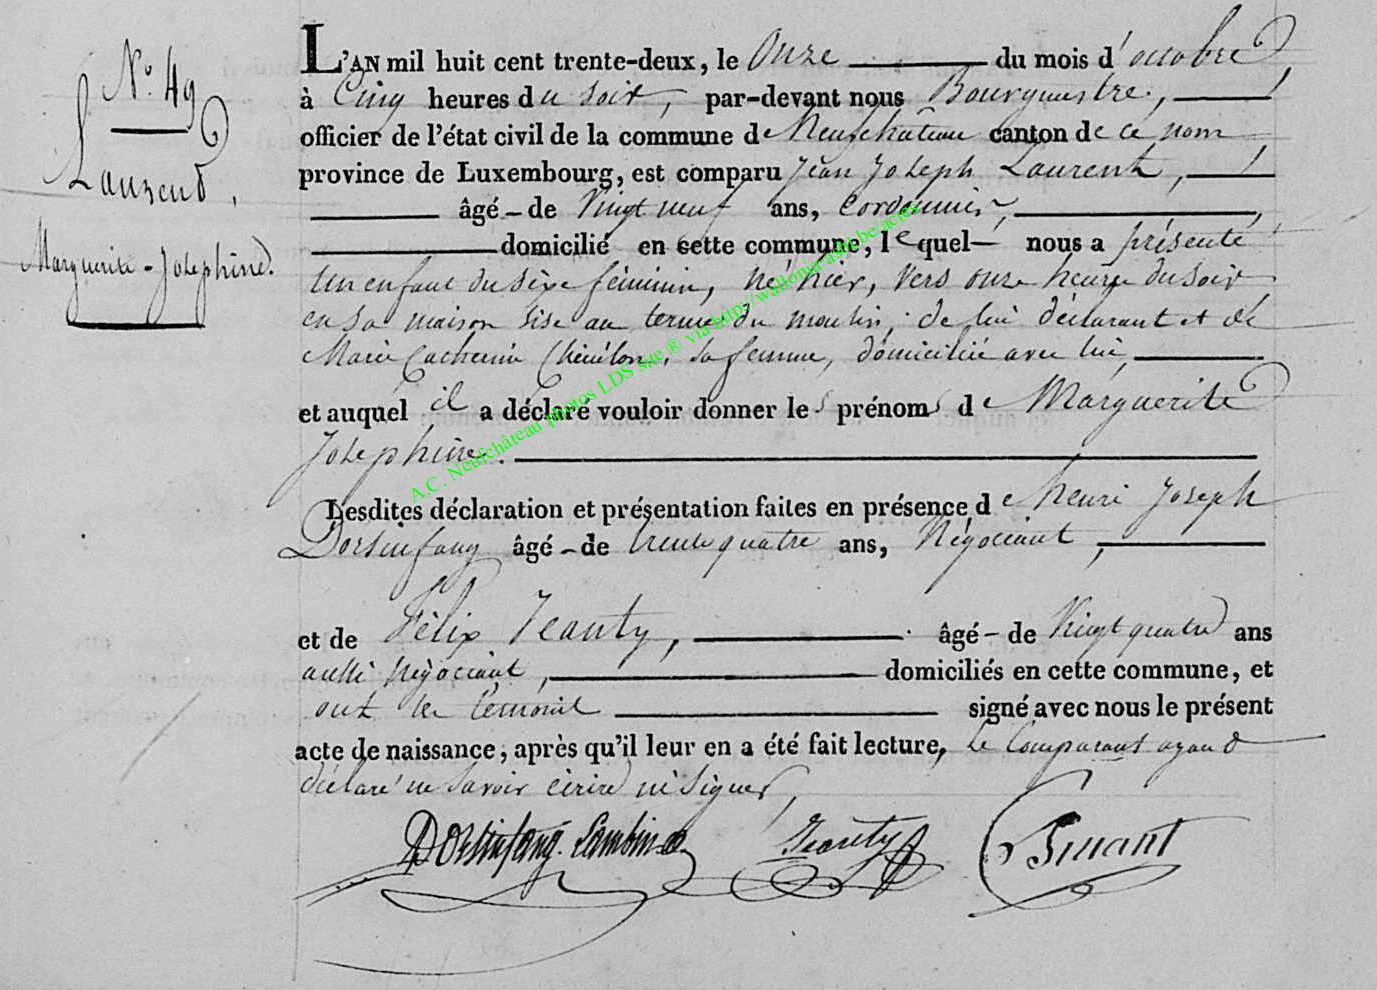 N.o 49
Laurent,
Marguerite-Josephine.
L'AN mil huit cent trente-deux, le Onze du mois d'octobre
à Cinq heures du soir, par-devant nous Bourgmestre,
officier de l'état civil de la commune de Neufchâteau canton de ce nom
province de Luxembourg, est comparu Jean Joseph Laurent,
âgé-de Vingt neuf ans, Cordonnier,
domicilié en cette commune, lequel nous a présenté
un enfant du sexe féminin, né hier, vers onze heures du soir
en sa maison sise au terme du moulin, de lui déclarant et de
Marie Catherine, sa femme, domiciliée avec lui,
et auquel il a déclaré vouloir donner les prénoms de Marguerite
Josephine.
Lesdites déclaration et présentation faites en présence de henri Joseph
Dorsinfang âgé-de trente quatre ans, Négociant,
et de Félix Jeanty, âgé-de Vingt quatre ans
aussi négociant, domiciliés en cette commune, et
ont les témoins signé avec nous le présent
acte de naissance, après qu'il leur en a été fait lecture, Le Comparant ayant
déclaré ne savoir écrire ni signer,
Dorsinfang Jeanty
A.C. Neufchâteau photos LDS site ® via http://wallonia-asbl.be/actes